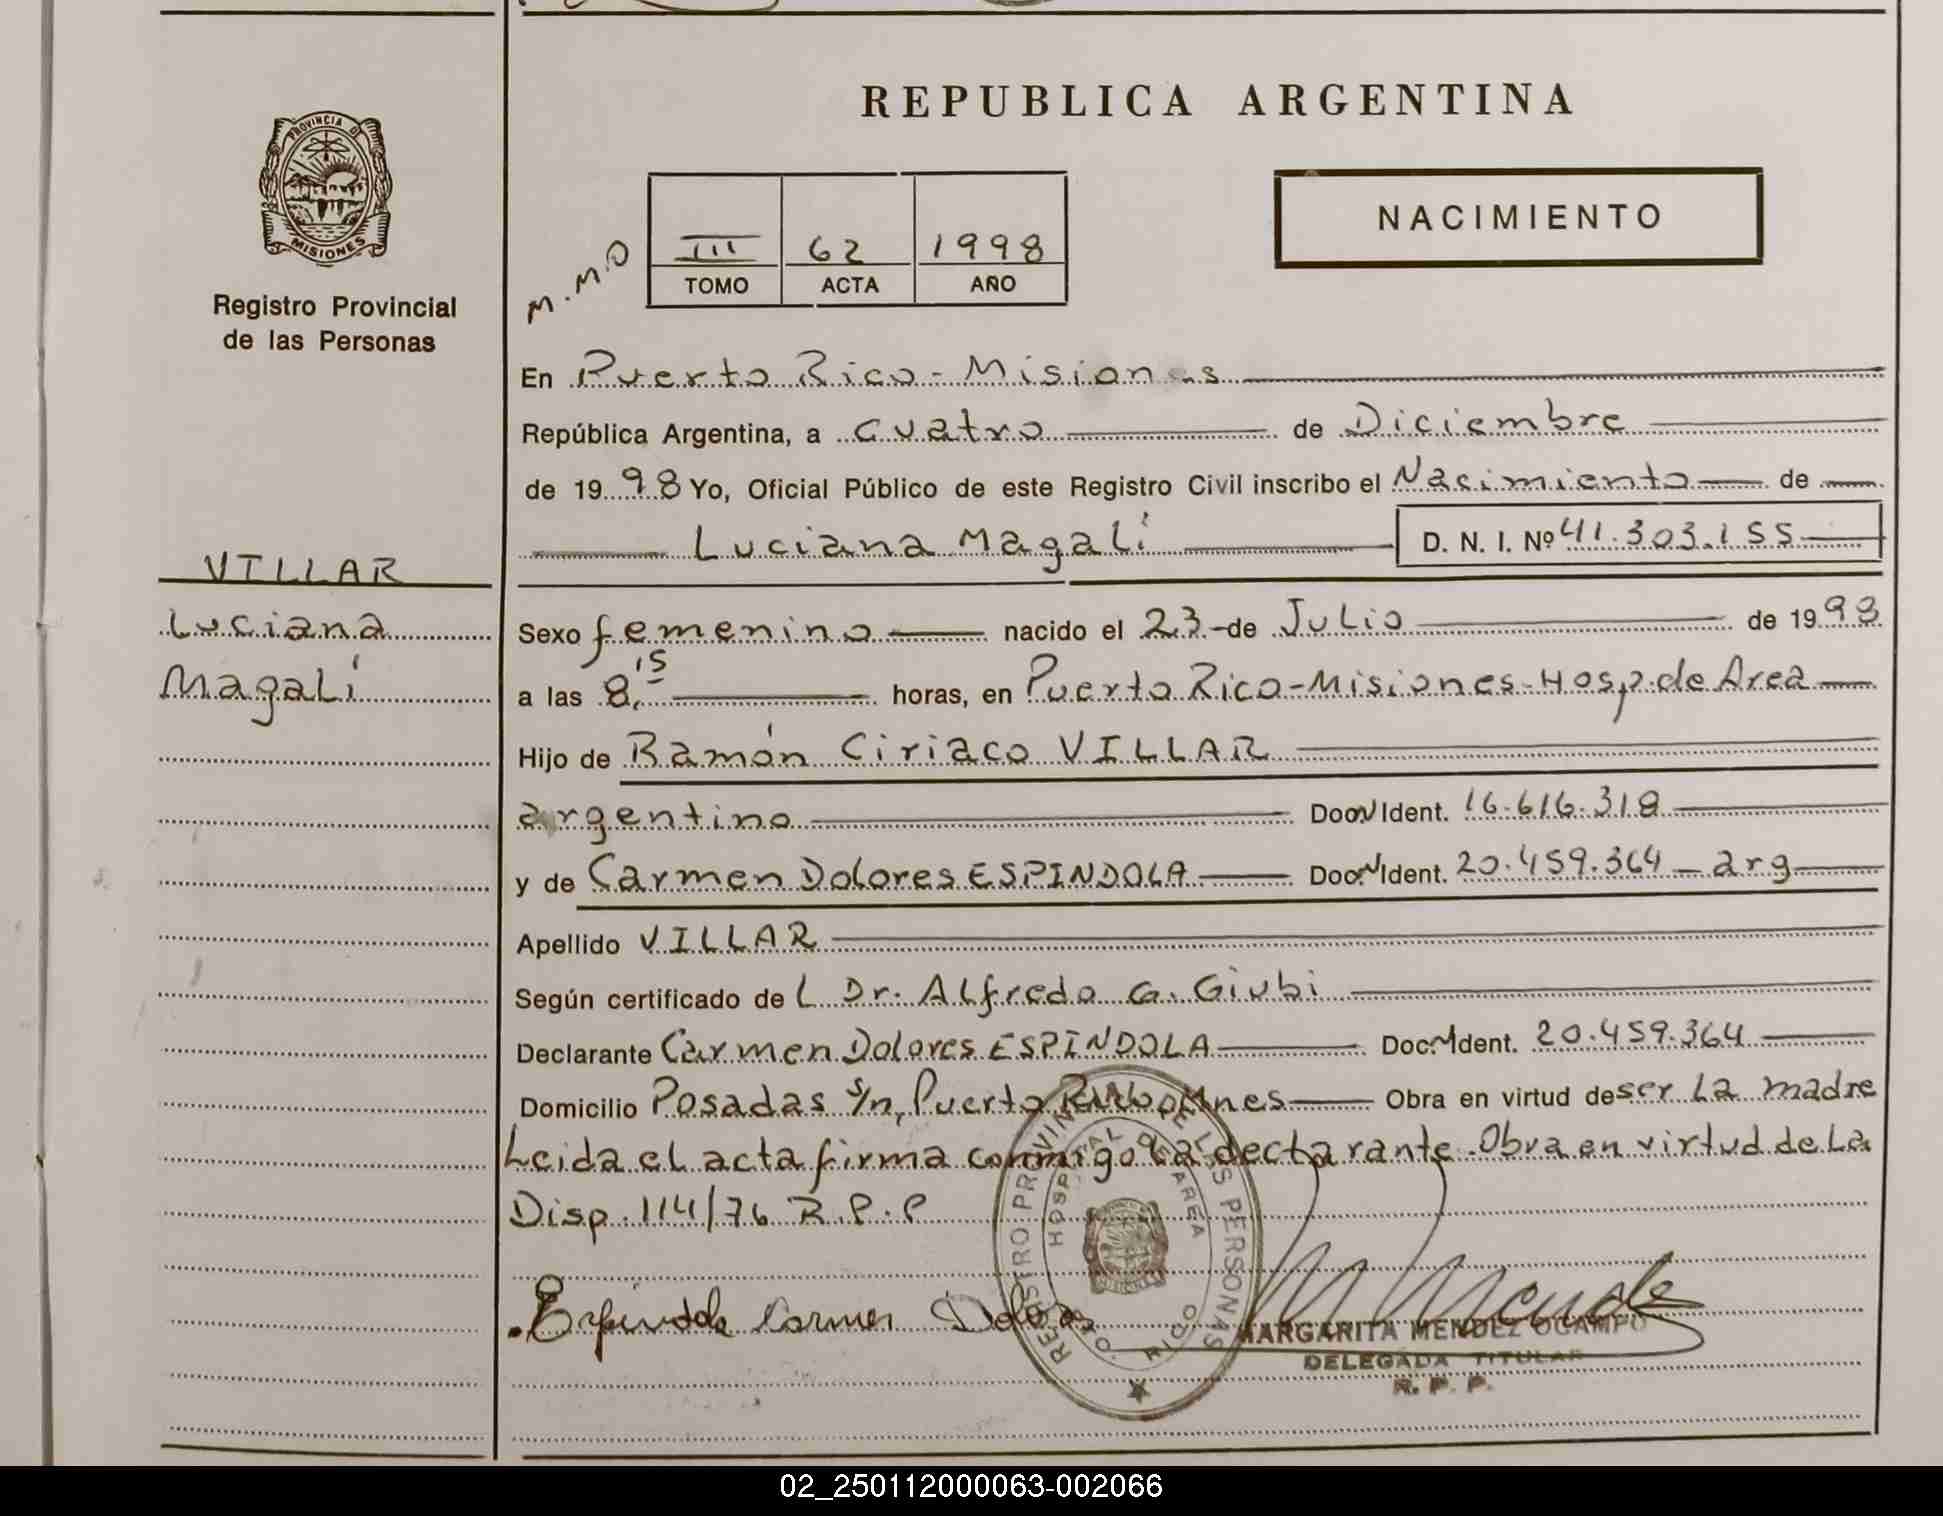 REPUBLICA ARGENTINA
PROVINCIA DE
MISIONES
Registro Provincial
de las Personas
NACIMIENTO
M.M.O
III 62 1998
TOMO ACTA AÑO
En Puerto Rico - Misiones
República Argentina, a cuatro de Diciembre
de 1998 Yo, Oficial Público de este Registro Civil inscribo el Nacimiento de
Luciana Magalí D. N. I. Nº 41.303.155
VILLAR
Luciana
Magalí
Sexo femenino nacido el 23 - de Julio de 1998
a las 8,15 horas, en Puerto Rico - Misiones - Hosp. de Area
Hijo de Ramón Ciriaco VILLAR
argentino Doc. N Ident. 16.616.318
y de Carmen Dolores ESPINDOLA Doc. N Ident. 20.459.364 - arg
Apellido VILLAR
Según certificado de L Dr. Alfredo G. Giubi
Declarante Carmen Dolores ESPINDOLA Doc. N Ident. 20.459.364
Domicilio Posadas s/n, Puerto Rico Mnes Obra en virtud de ser La madre
Leida el acta firma conmigo la declarante. Obra en virtud de La
Disp. 114/76 R.P.P
Espindola Carmen Dolores
REGISTRO PROVINCIAL DE LAS PERSONAS
HOSPITAL DE AREA
P. RICO
M Mendez
MARGARITA MENDEZ OCAMPO
DELEGADA TITULAR
R. P. P.
02_250112000063-002066